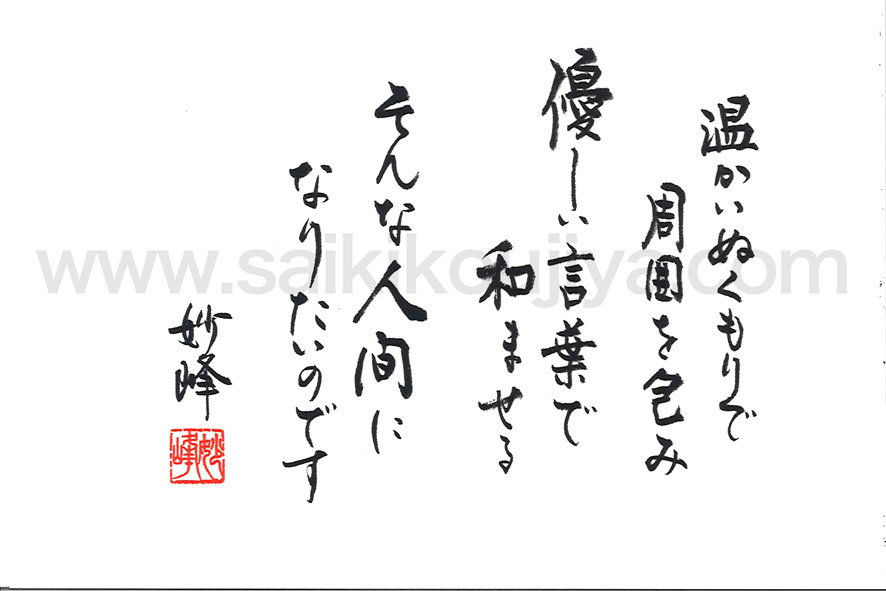 温かいぬくもりで
周囲を包み
優しい言葉で
和ませる
そんな人間に
なりたいのです
妙峰
妙峰
www.saikikoujiya.com